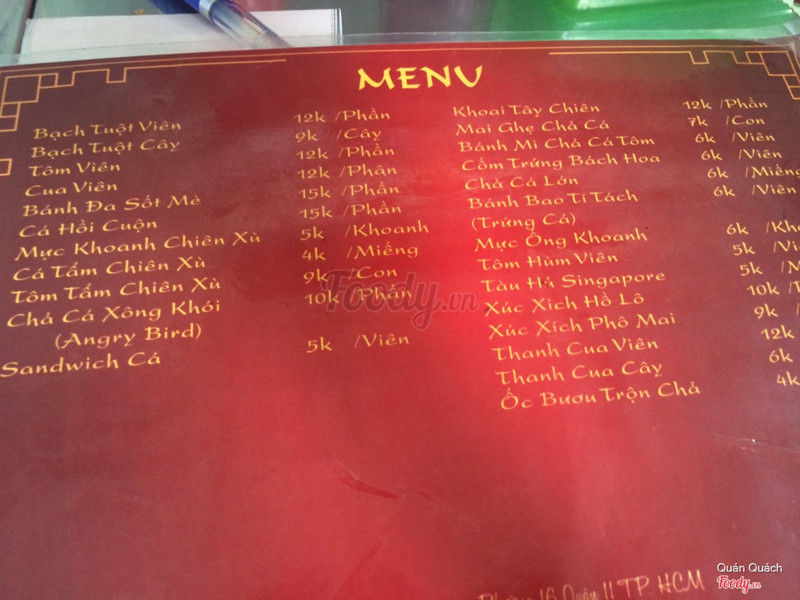 MENU
Bạch Tuột Viên 12k /Phần
Bạch Tuột Cây 9k /Cây
Tôm Viên 12k /Phần
Cua Viên 12k /Phần
Bánh Đa Sốt Mè 15k /Phần
Cá Hồi Cuộn 15k /Phần
Mực Khoanh Chiên Xù 5k /Khoanh
Cá Tẩm Chiên Xù 4k /Miếng
Tôm Tẩm Chiên Xù 9k /Con
Chả Cá Xông Khói 10k /Phần
(Angry Bird)
Sandwich Cá 5k /Viên
Khoai Tây Chiên 12k /Phần
Mai Ghẹ Chả Cá 7k /Con
Bánh Mì Chả Cá Tôm 6k /Viên
Cốm Trứng Bách Hoa 6k /Viên
Chả Cá Lớn 6k /Miếng
Bánh Bao Tí Tách 6k /Viên
(Trứng Cá)
Mực Ống Khoanh 6k
Tôm Hùm Viên 5k
Tàu Hủ Singapore 5k
Xúc Xích Hồ Lô 10k
Xúc Xích Phô Mai 9k
Thanh Cua Viên 12k
Thanh Cua Cây 6k
Ốc Bươu Trộn Chả 4k
Foody.vn
16 Quận 11 TP. HCM
Quán Quách
Foody.vn